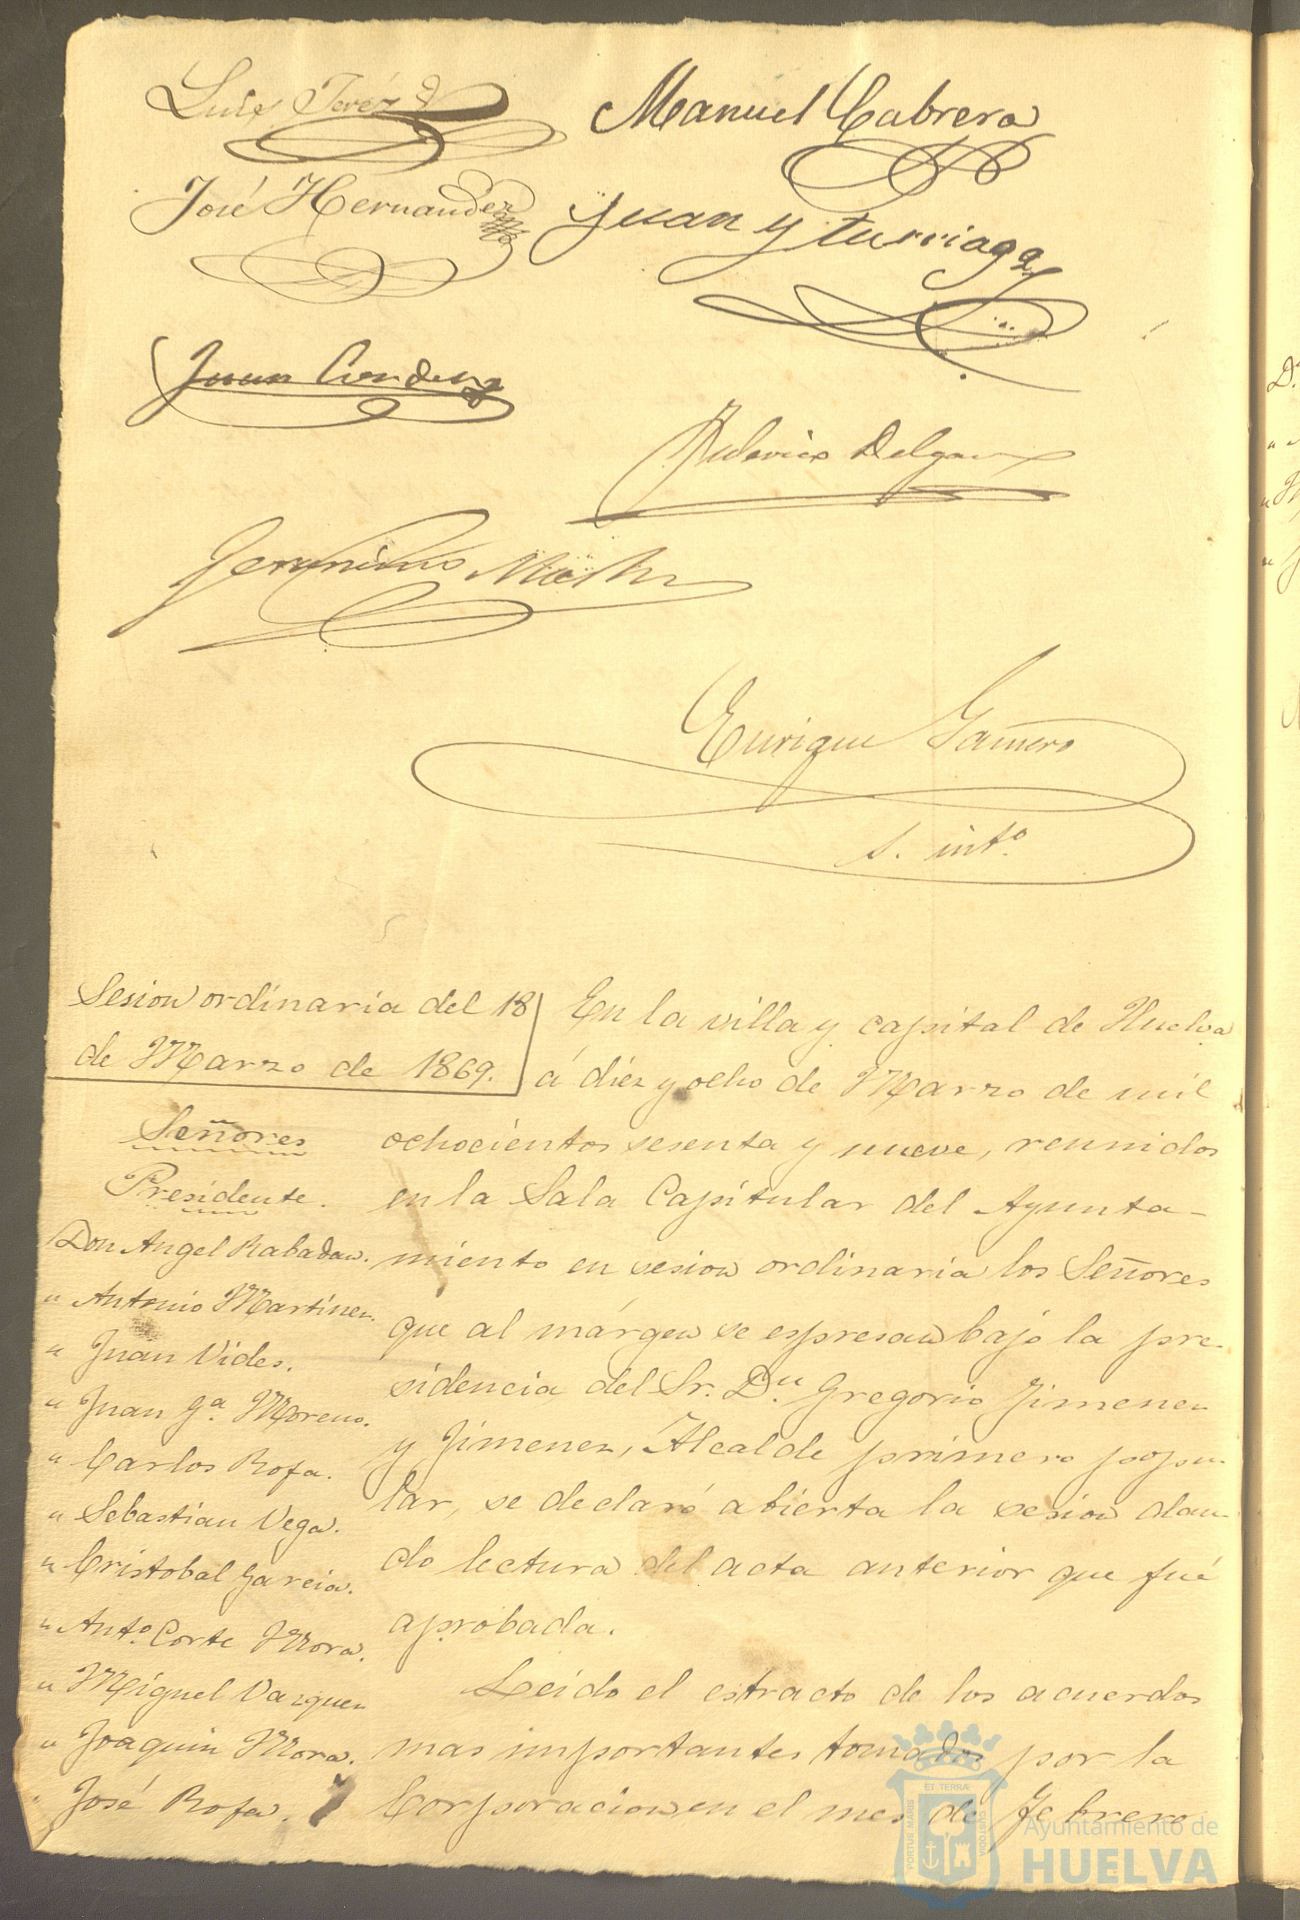 Luis
Manuel Cabrera
José Hernandez
Juan Yturriaga
Juan
Federico Delgado
Jeronimo Martin
Enrique Gamero
s. intº
Sesion ordinaria del 18
de Marzo de 1869.
Señores
Presidente.
Don Angel Rabadan.
" Antonio Martinez
" Juan Vides.
" Juan Gª. Moreno.
" Carlos Rofa.
" Sebastian Vega.
" Cristobal Garcia.
" Antº. Corte Mora.
" Miguel Vazquez
" Joaquin Mora.
" José Rofa.
En la villa y capital de Huelva
á diez y ocho de Marzo de mil
ochocientos sesenta y nueve, reunidos
en la Sala Capitular del Ayunta-
miento en sesion ordinaria los Señores
que al márgen se espresan bajo la pre-
sidencia del Sr. Dn Gregorio Jimenez
y Jimenez, Alcalde primero popu-
lar, se declaró abierta la sesion dan-
do lectura del acta anterior que fué
aprobada.
Leido el estracto de los acuerdos
mas importantes tomados por la
Corporacion en el mes de Febrero
ET TERRÆ
PORTUS MARIS
CUSTODIA
Ayuntamiento de
HUELVA